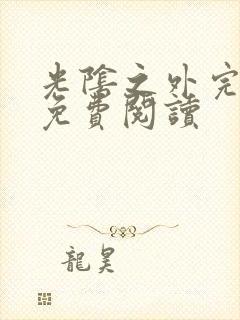 光陰之外完
免費閱讀
龍昊